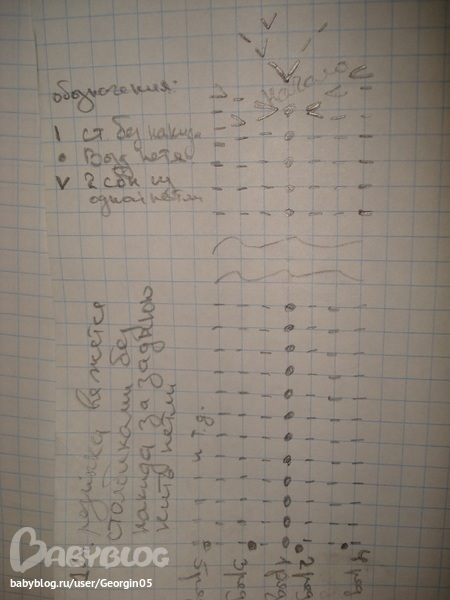 обозначения:
I ст без накида
• возд петля
V 2 сбн из
одной петли
начало
вяжется
столбиками без
накида за заднюю
нить петли
и т.д.
5 ряд
3 ряд
1 ряд
2 ряд
4 ряд
BABYBLOG
babyblog.ru/user/Georgin05